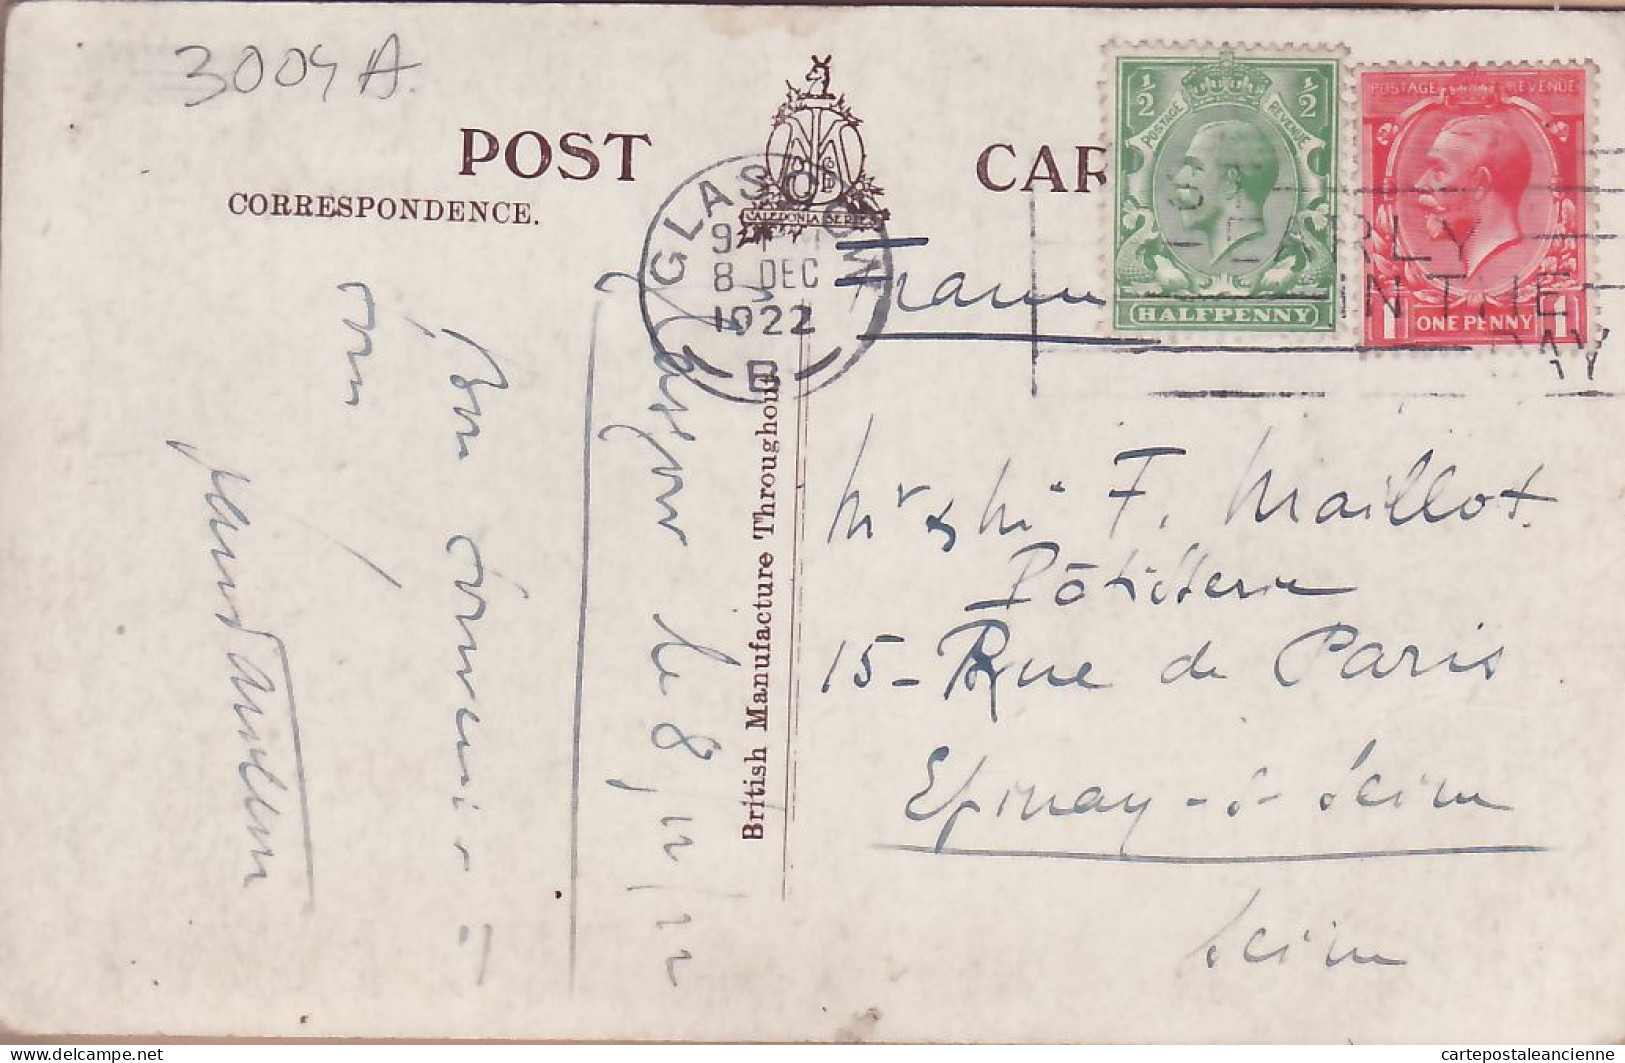 3004A.
POST CAR
CORRESPONDENCE.
CALEDONIA SERIES
GLASGOW
8 DEC
1922
B
½ ½
POSTAGE REVENUE
HALFPENNY
POSTAGE REVENUE
1 ONE PENNY 1
EARLY
IN THE
British Manufacture Throughout
Glasgow le 8/12/22
Bon
France
Mr & Me F. Maillot
Pâtisserie
15 - Rue de Paris
Epinay-s-Seine
Seine
delcampe.net
cartepostaleancienne